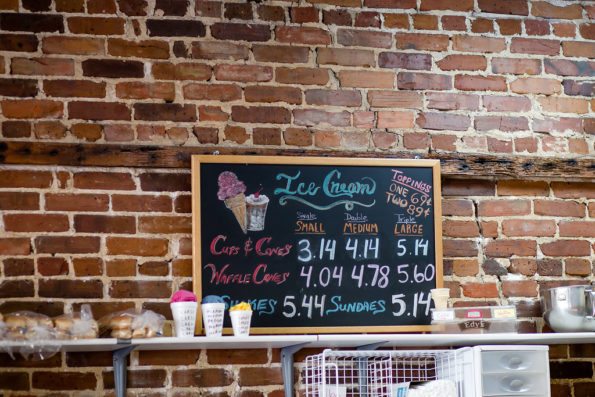 Ice Cream
TOPPINGS
ONE 69¢
TWO 89¢
Single Double Triple
SMALL MEDIUM LARGE
CUPS & CONES 3.14 4.14 5.14
WAFFLE CONES 4.04 4.78 5.60
SHAKES 5.44 SUNDAES 5.14
EDYS